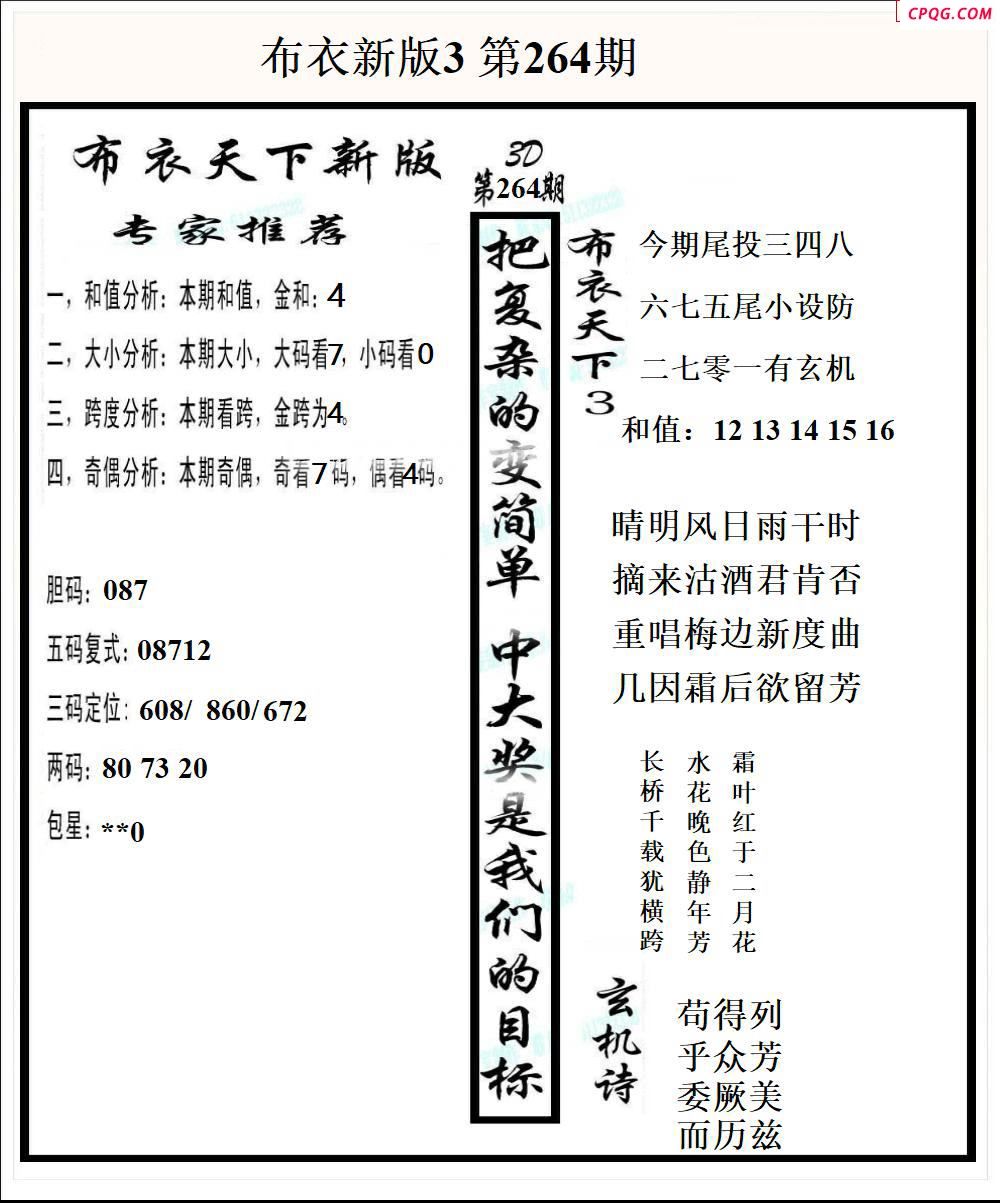 CPQG.COM
布衣新版3 第264期
布衣天下新版
专家推荐
一，和值分析：本期和值，金和：4
二，大小分析：本期大小，大码看7，小码看0
三，跨度分析：本期看跨，金跨为4。
四，奇偶分析：本期奇偶，奇看7码，偶看4码。
胆码：087
五码复式：08712
三码定位：608/ 860/672
两码：80 73 20
包星：**0
3D
第264期
把复杂的变简单 中大奖是我们的目标
布衣天下3
今期尾投三四八
六七五尾小设防
二七零一有玄机
和值：12 13 14 15 16
晴明风日雨干时
摘来沽酒君肯否
重唱梅边新度曲
几因霜后欲留芳
长桥千载犹横跨
水花晚色静年芳
霜叶红于二月花
玄机诗
苟得列
乎众芳
委厥美
而历兹